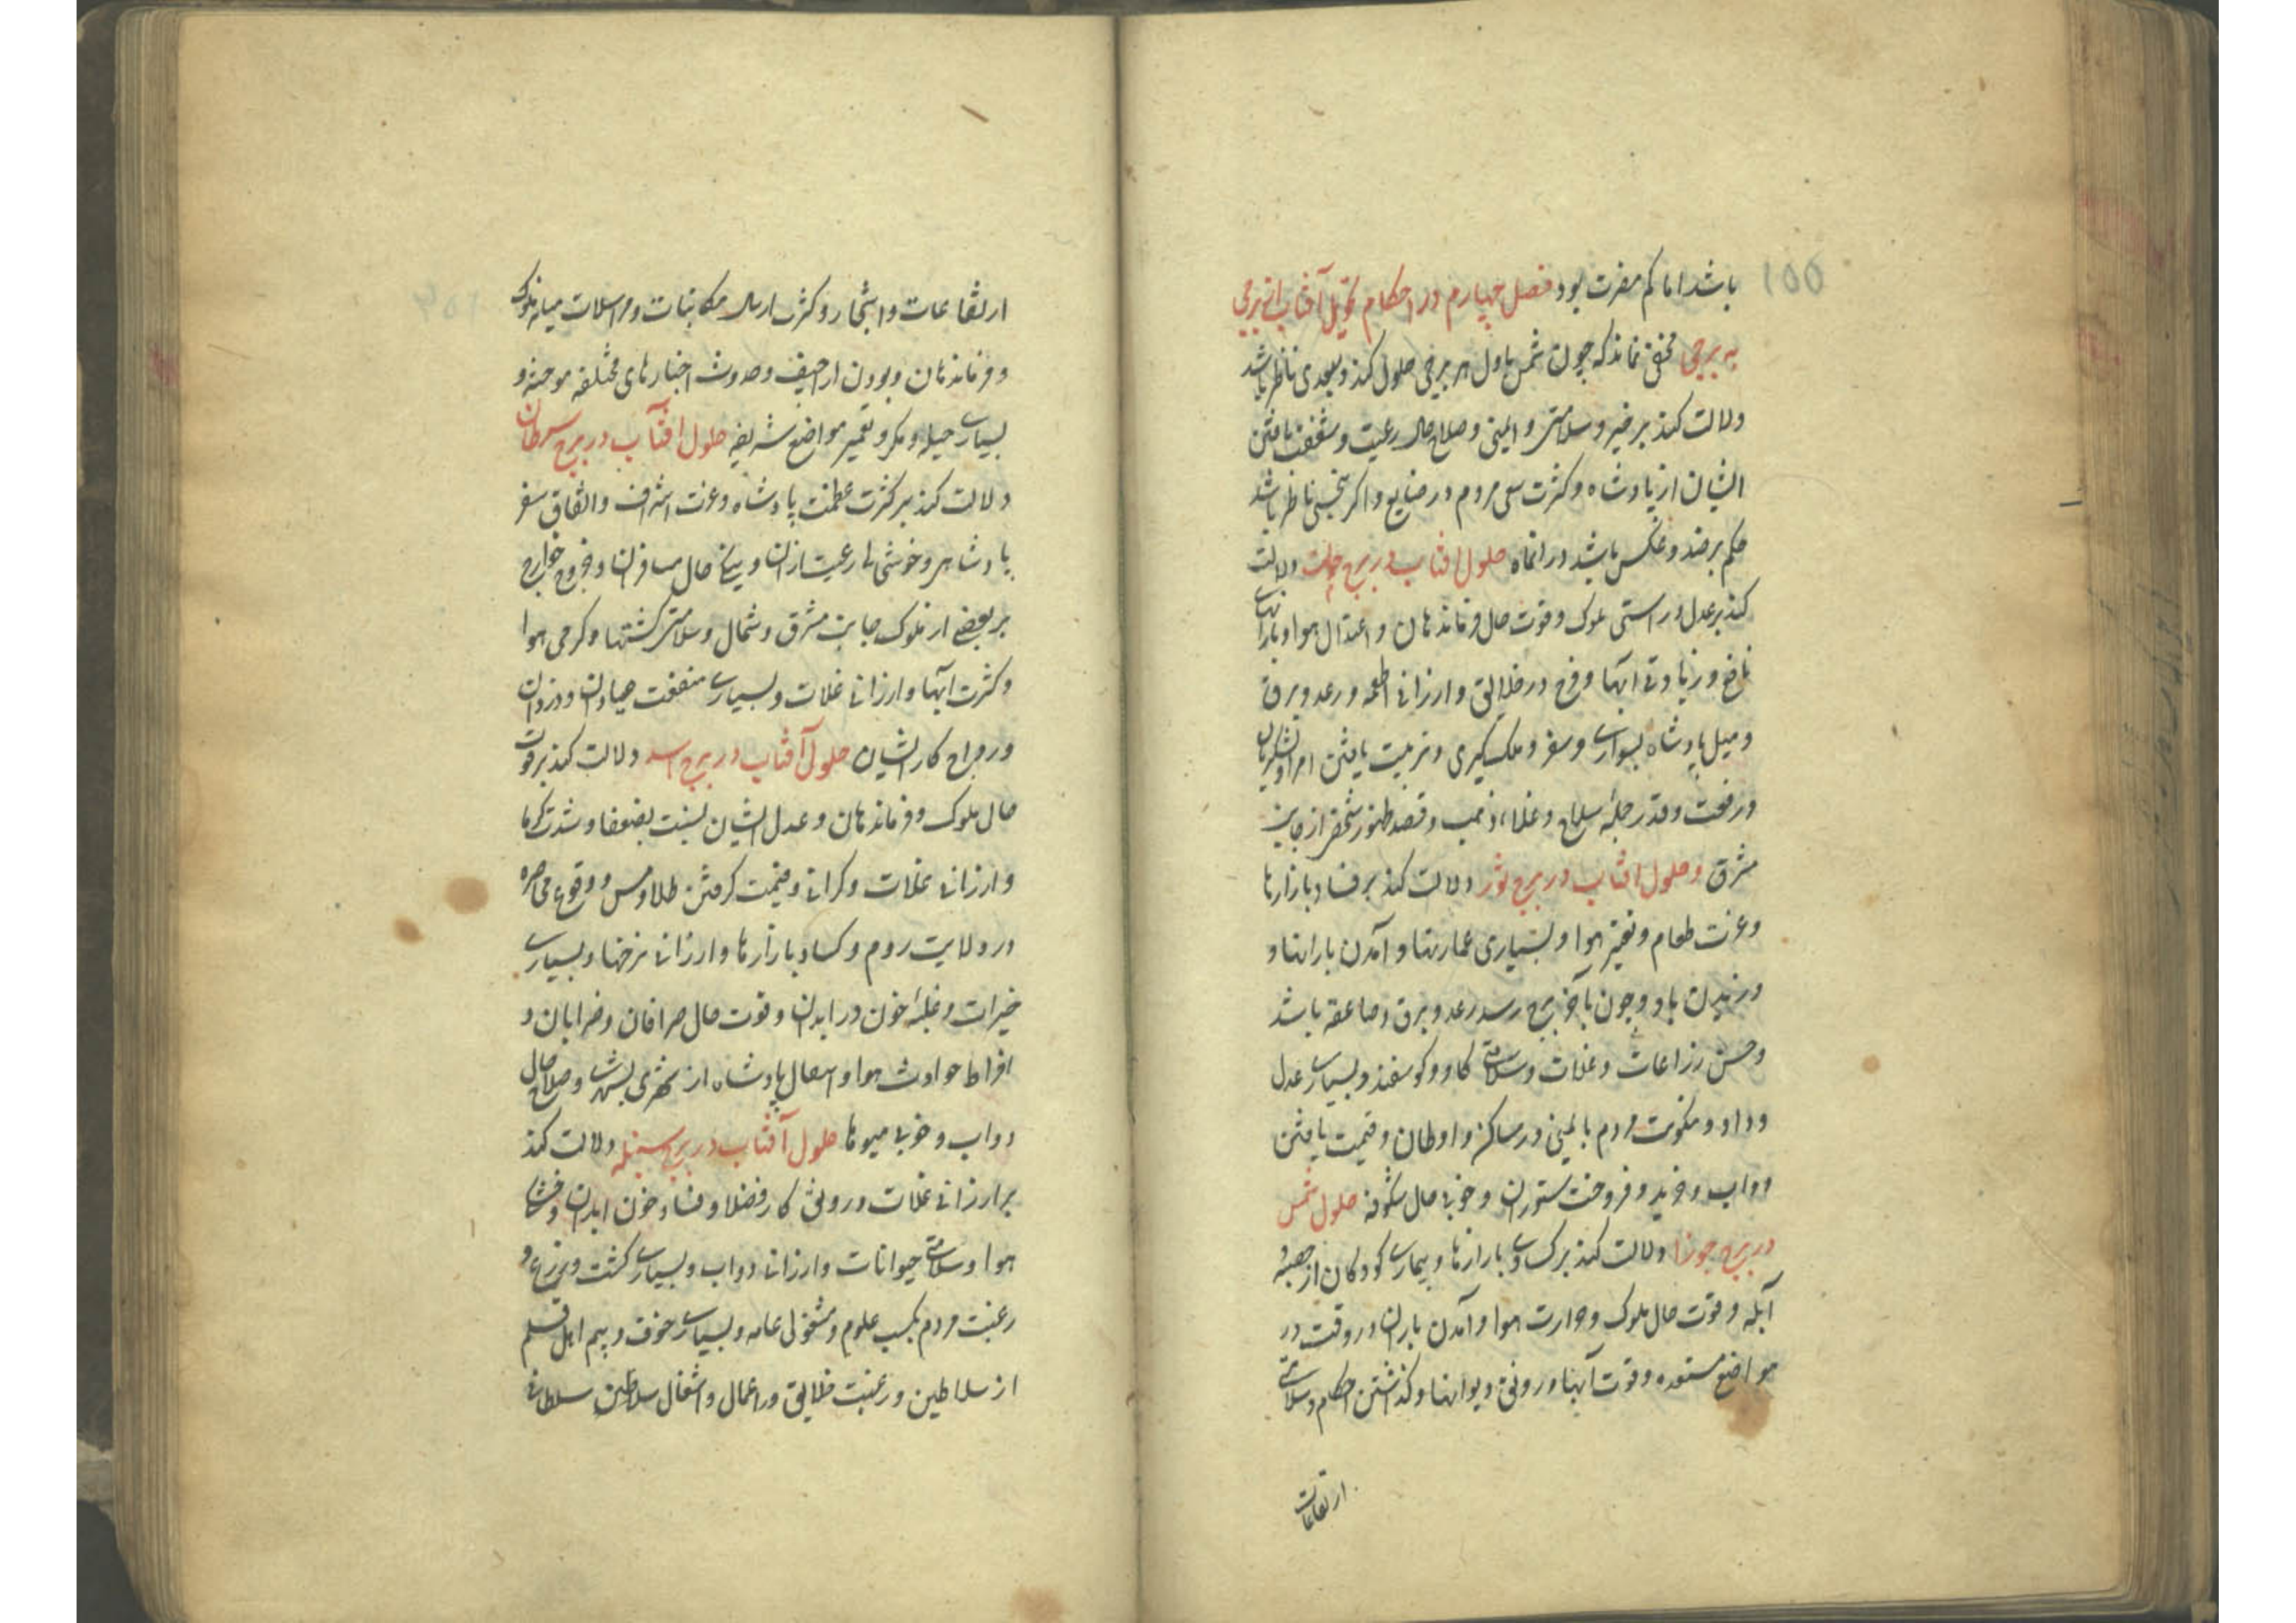 باشد اما کم مضرت بود فصل چهارم در احکام تحویل آفتاب از برجی
به برجی مخفی نماند که چون شمس باول هر برجی حلول کند و بسعدی ناظر باشد
دلالت کند بر خیر و سلامتی و ایمنی و صلاح حال رعیت و شفقت یافتن
ایشان از پادشاه و کثرت سعی مردم در صنایع و اکر بنحسی ناظر باشد
حکم بر ضد و عکس باشد در انماه حلول افتاب در برج حمل دلالت
کند بر عدل و راستی ملوک و قوت حال فرماندهان و اعتدال هوا و بارانهای
نافع و زیادتی آبها و فرح در خلایق و ارزانی اطعمه و رعد و برق
و میل پادشاه بسواری و سفر و ملک کیری و تربیت یافتن امرا و لشکریان
و رفعت و قدر جمله سلاح و غلاء ذهب و قصد ظهور شخصی از جانب
مشرق و حلول افتاب در برج ثور دلالت کند بر فساد بازارها
و عزت طعام و تغیر هوا و بسیاری عمارتها و آمدن بارانها و
وزیدن باد و چون بآخر برج رسد رعد و برق و صاعقه باشد
و حسن زراعات و غلات و سلامتی کاو و کوسفند و بسیاری عدل
و داد و سکونت مردم بایمنی در مساکن و اوطان و قیمت یافتن
دواب و خرید و فروخت ستوران و خوبی حال شکوفه حلول شمس
در برج جوزا دلالت کند بر کسادی بازارها و بیماری کودکان از حصبه و
آبله و قوت حال ملوک و حرارت هوا و آمدن باران در وقت در
مواضع مستعده و قوت آبها و رونق دیوانها و کذاشتن احکام و سلامتی
ارتفاعات
ارتفاعات و اشجار و کثرت ارسال مکاتبات و مراسلات میانه ملوک
و فرماندهان و بودن اراجیف و حدوث اخبارهای مختلفه موحشه و
بسیاری حیله و مکر و تعمیر مواضع شریفه حلول افتاب در برج سرطان
دلالت کند بر کثرت عظمت پادشاه و عزت اشراف و اتفاق سفر
پادشاهی و خوشی رعیت از آن و نیکی حال مسافران و خروج خوارج
بر بعضی از ملوک جانب مشرق و شمال و سلامتی کشتیها و کرمی هوا
و کثرت ابها و ارزانی غلات و بسیاری منفعت صیادان و دزدان
و رواج کار ایشان حلول آفتاب در برج اسد دلالت کند بر قوت
حال ملوک و فرماندهان و عدل ایشان بنسبت بضعفا و شدت کرما
و ارزانی غلات و کرانی و قیمت کرفتن طلا و مس و وقوع محاصره
در ولایت روم و کساد بازارها و ارزانی نرخها و بسیاری
خیرات و غلبه خون در ابدان و قوت حال صرافان و ضرابان و
افراط حوادث هوا و انتقال پادشاه از شهری بشهری و صلاح حال
دواب و خوبی میوها حلول آفتاب در برج سنبله دلالت کند
بر ارزانی غلات و رونق کار فضلا و فساد خون ابدان و خشکی
هوا و سلامتی حیوانات و ارزانی دواب و بسیاری کشت و زرع و
رغبت مردم بکسب علوم و مشغولی عامه و بسیاری خوف و بیم اهل قلم
از سلاطین و رغبت خلایق در اعمال و اشغال سلاطین سلطانی